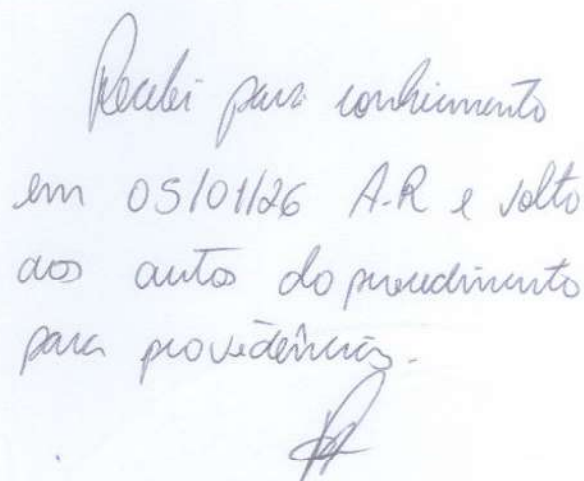 Recebi para conhecimento
em 05/01/26 A.R e volto
aos autos do procedimento
para providências.